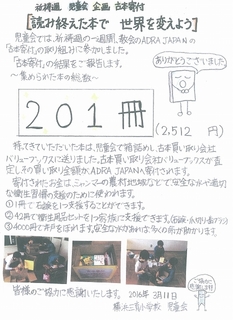 祈祷週 児童会 企画 古本寄付
[読み終えた本で 世界を変えよう]
児童会では、祈祷週の一週間、教会のADRA JAPANの
「古本寄付」の取り組みに参加しました。
「古本寄付」の結果をご報告します。
ありがとうございました
～集められた本の総数～
201冊
(2,512 円)
持ってきていただいた本は、児童会で箱詰めし、古本買い取り会社
バリューブックスに送りました。古本買い取り会社バリューブックスが査
定し、その買い取り金額がADRA JAPANへ寄付されます。
寄付されたお金は、ミャンマーの農村地域などで安全な水や適切
な衛生習慣の支援のために使われます。
①1冊で石鹸を1つ支援することができます。
②42冊で衛生用品セットを1つ家族に支援できます。
③4000円で井戸をほれます。安全な水があれば多くの命が助かります。
皆様のご協力に感謝いたします。
2016年3月11日
横浜三育小学校 児童会